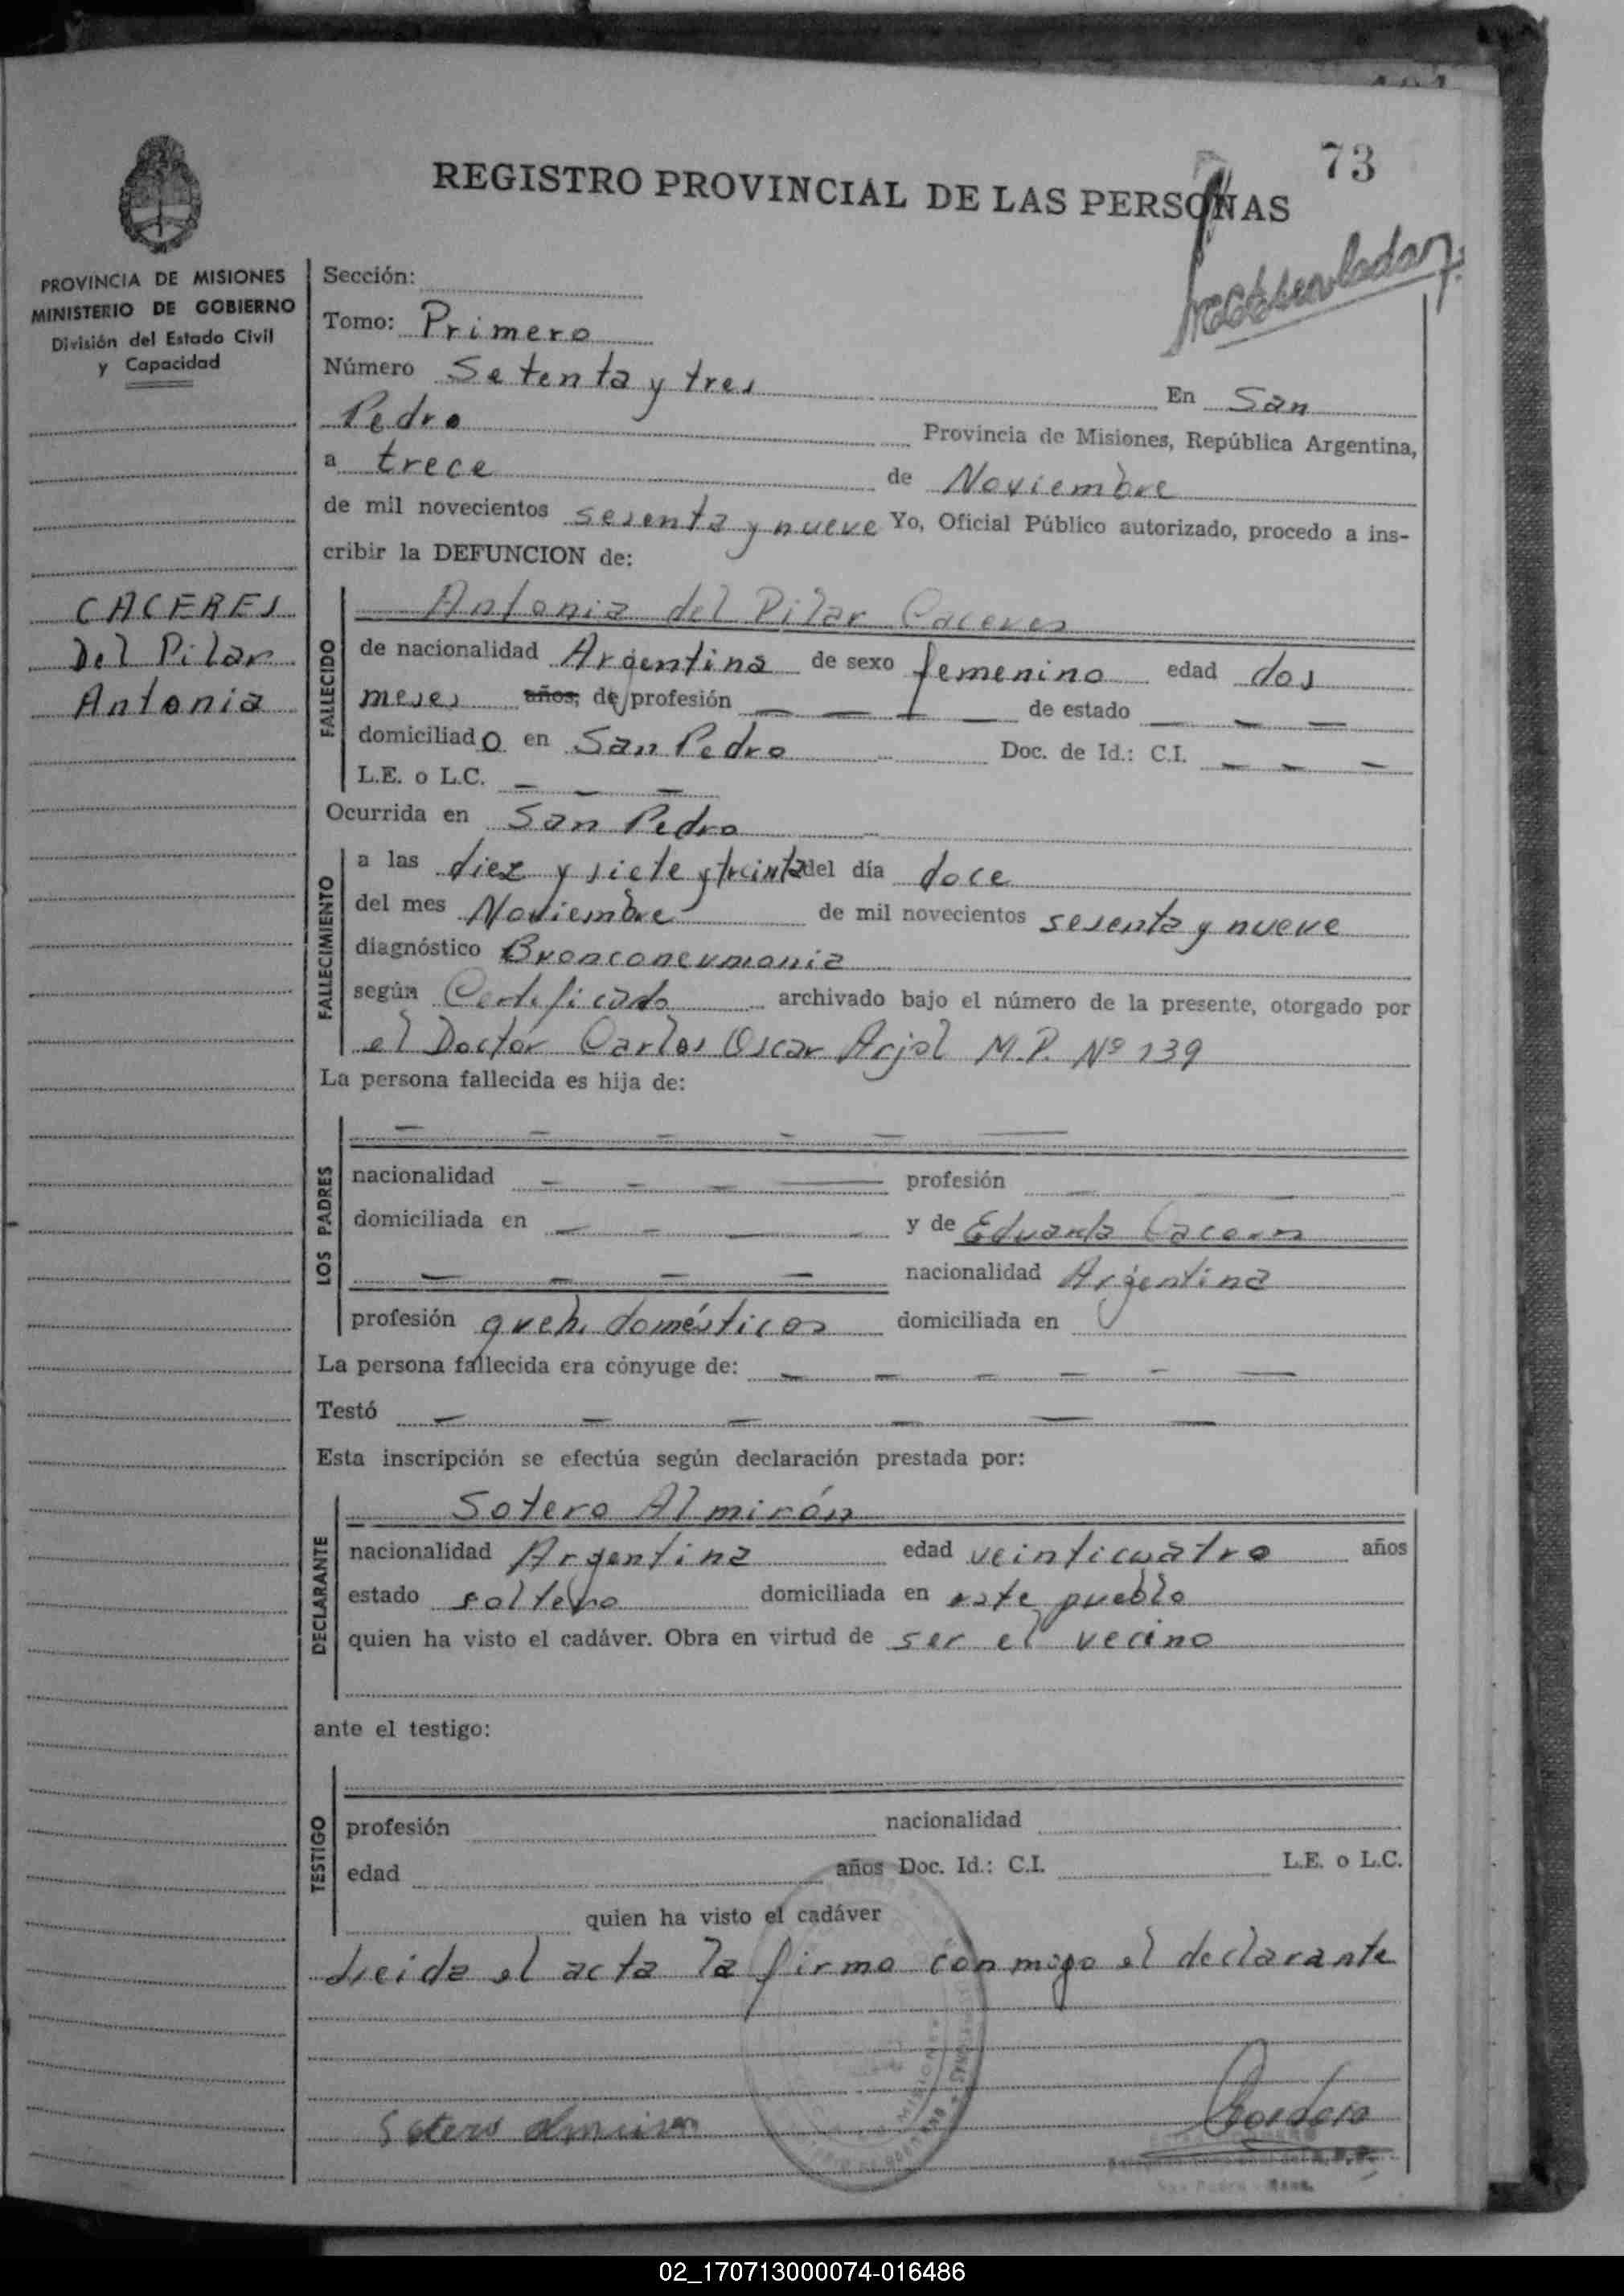 73
REGISTRO PROVINCIAL DE LAS PERSONAS
PROVINCIA DE MISIONES
MINISTERIO DE GOBIERNO
División del Estado Civil
y Capacidad
CACERES
Del Pilar
Antonia
Sección:
Tomo: Primero
Número Setenta y tres En San
Pedro Provincia de Misiones, República Argentina,
a trece de Noviembre
de mil novecientos sesenta y nueve Yo, Oficial Público autorizado, procedo a ins-
cribir la DEFUNCION de:
FALLECIDO
Antonia del Pilar Caceres
de nacionalidad Argentina de sexo femenino edad dos
meses años, de profesión — — — — de estado — — —
domiciliado en San Pedro Doc. de Id.: C.I. — — —
L.E. o L.C. — — —
Ocurrida en San Pedro
FALLECIMIENTO
a las diez y siete y treinta del día doce
del mes Noviembre de mil novecientos sesenta y nueve
diagnóstico Bronconeumonia
según Certificado archivado bajo el número de la presente, otorgado por
el Doctor Carlos Oscar Arjol M.P. Nº 139
La persona fallecida es hija de:
LOS PADRES
— — — — — —
nacionalidad — — — — profesión — —
domiciliada en — — — — y de Eduarda Caceres
— — — — nacionalidad Argentina
profesión queh. domésticos domiciliada en
La persona fallecida era cónyuge de: — — — — — —
Testó — — — — — —
Esta inscripción se efectúa según declaración prestada por:
DECLARANTE
Sotero Almirón
nacionalidad Argentina edad veinticuatro años
estado soltero domiciliada en este pueblo
quien ha visto el cadáver. Obra en virtud de ser el vecino
ante el testigo:
TESTIGO
profesión nacionalidad
edad años Doc. Id.: C.I. L.E. o L.C.
quien ha visto el cadáver
Leida el acta la firma conmigo el declarante
Sotero Almiron
Cordero
02_170713000074-016486